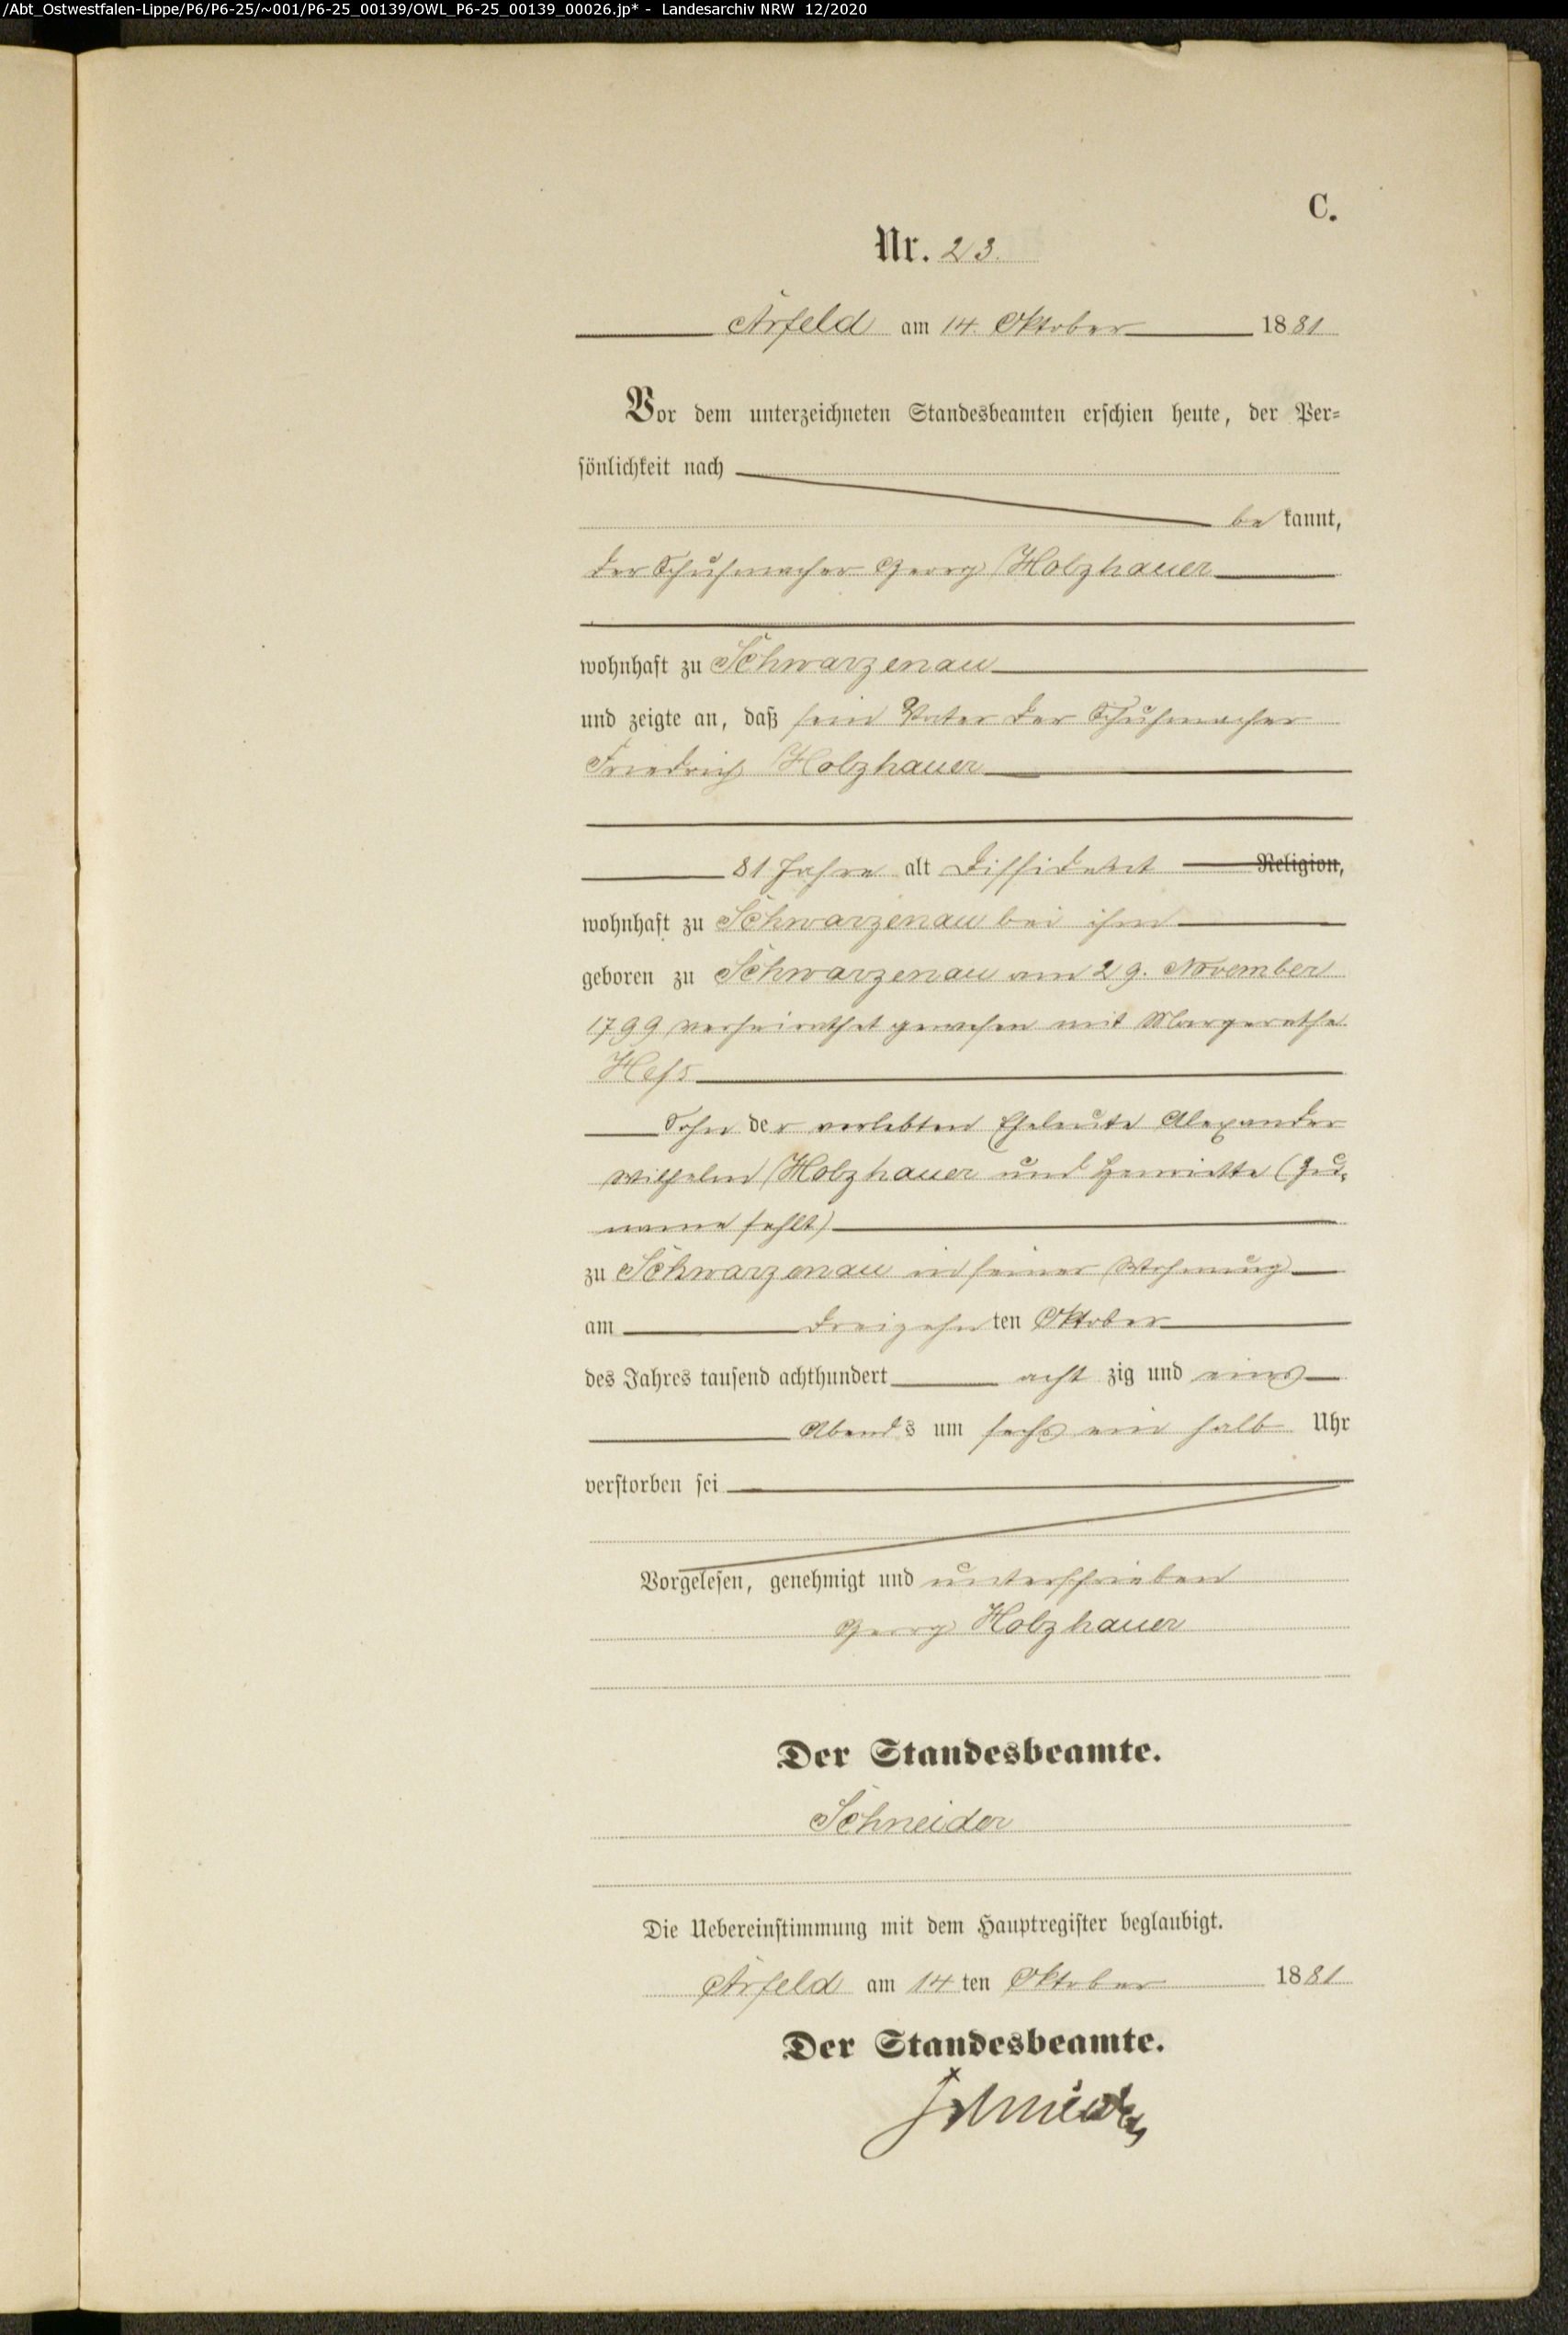 /Abt_Ostwestfalen-Lippe/P6/P6-25/~001/P6-25_00139/OWL_P6-25_00139_00026.jp* - Landesarchiv NRW 12/2020
C.
Nr. 23.
Arfeld am 14. Oktober 1881
Vor dem unterzeichneten Standesbeamten erschien heute, der Per-
sönlichkeit nach
be kannt,
der Schuhmacher Georg Holzhauer
wohnhaft zu Schwarzenau
und zeigte an, daß sein Vater der Schuhmacher
Friedrich Holzhauer
81 Jahre alt Dissident Religion,
wohnhaft zu Schwarzenau bei ihm
geboren zu Schwarzenau am 29. November
1799 verheirathet gewesen mit Margarethe
Heß
Sohn der verlebten Eheleute Alexander
Wilhelm Holzhauer und Henriette (Zu-
name fehlt)
zu Schwarzenau in seiner Wohnung
am dreizehnten Oktober
des Jahres tausend achthundert acht zig und eins
Abends um sechs ein halb Uhr
verstorben sei
Vorgelesen, genehmigt und unterschrieben
Georg Holzhauer
Der Standesbeamte.
Schneider
Die Uebereinstimmung mit dem Hauptregister beglaubigt.
Arfeld am 14ten Oktober 1881
Der Standesbeamte.
Schneider